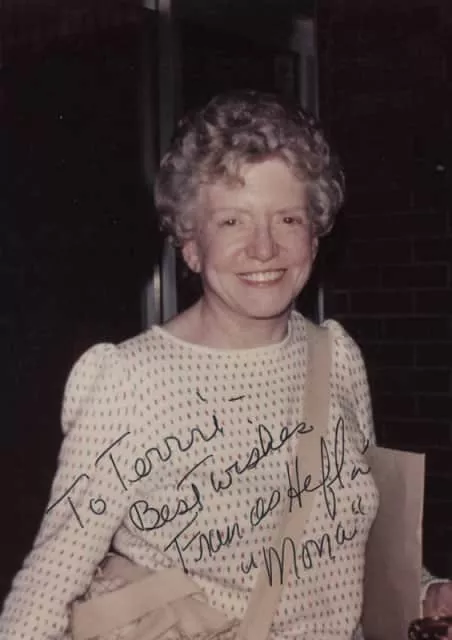 To Terrri -
Best wishes
Frances Heflin
"Mona"